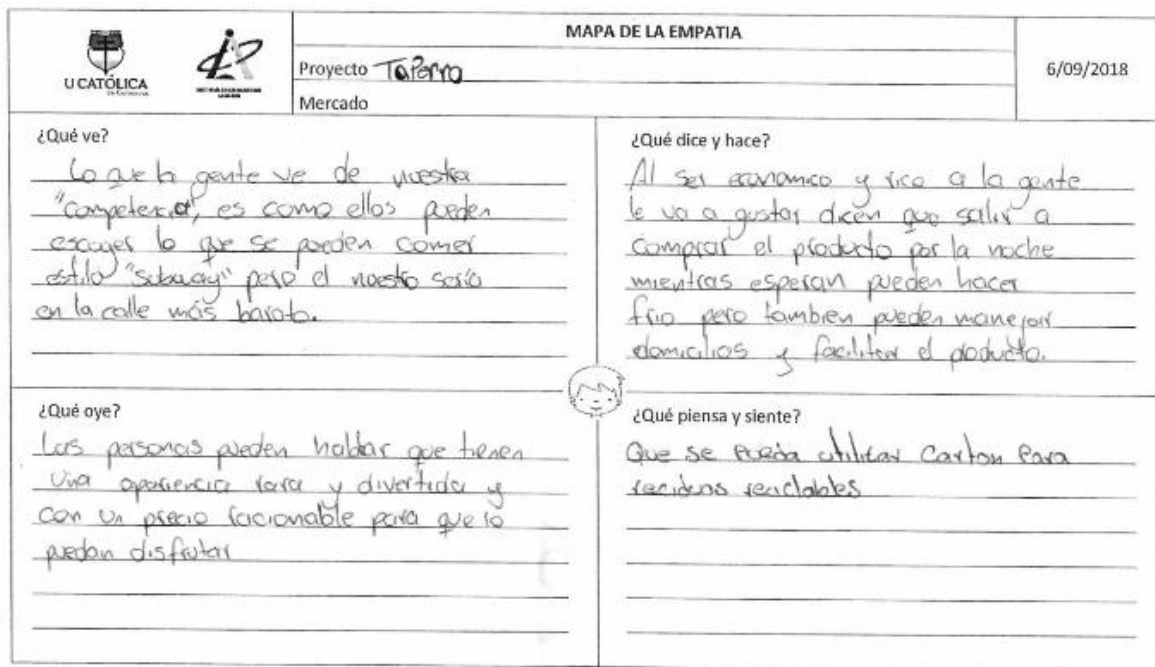 MAPA DE LA EMPATIA
U CATÓLICA
Proyecto TaParro
6/09/2018
Mercado
¿Qué ve?
Lo que la gente ve de nuestra
"competencia", es como ellos pueden
escoger lo que se pueden comer
estilo "Subway" pero el nuestro seria
en la calle más barato.
¿Qué dice y hace?
Al ser economico y rico a la gente
le va a gustar dicen que salir a
comprar el producto por la noche
mientras esperan pueden hacer
frio pero tambien pueden manejar
domicilios y facilitar el producto.
¿Qué oye?
Las personas pueden hablar que tienen
una apariencia rara y divertida y
con un precio racionable para que lo
puedan disfrutar
¿Qué piensa y siente?
Que se pueda utilizar Carton Para
reciduos reciclables